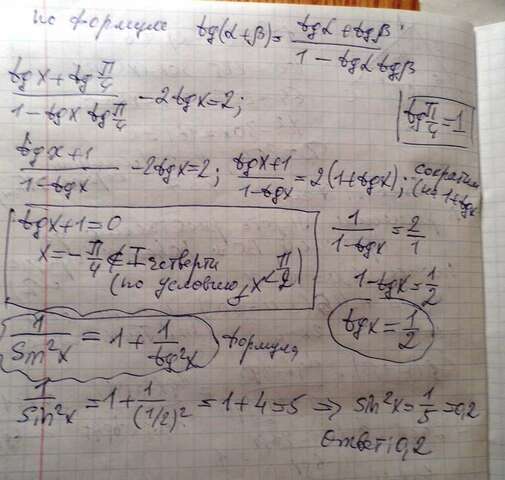 по формуле tg(α+β)=(tgα+tgβ)/(1-tgα tgβ)
(tgx+tg π/4)/(1-tgx tg π/4) -2tgx=2; tg π/4=1
(tgx+1)/(1-tgx) -2tgx=2; (tgx+1)/(1-tgx)=2(1+tgx); сократим
(на 1+tgx
tgx+1=0
x=-π/4 ∉ I четверти
(по условию, x<π/2)
1/(1-tgx)=2/1
1-tgx=1/2
tgx=1/2
1/sin²x=1+1/tg²x формула
1/sin²x=1+1/(1/2)²=1+4=5 => sin²x=1/5=0,2
Ответ: 0,2